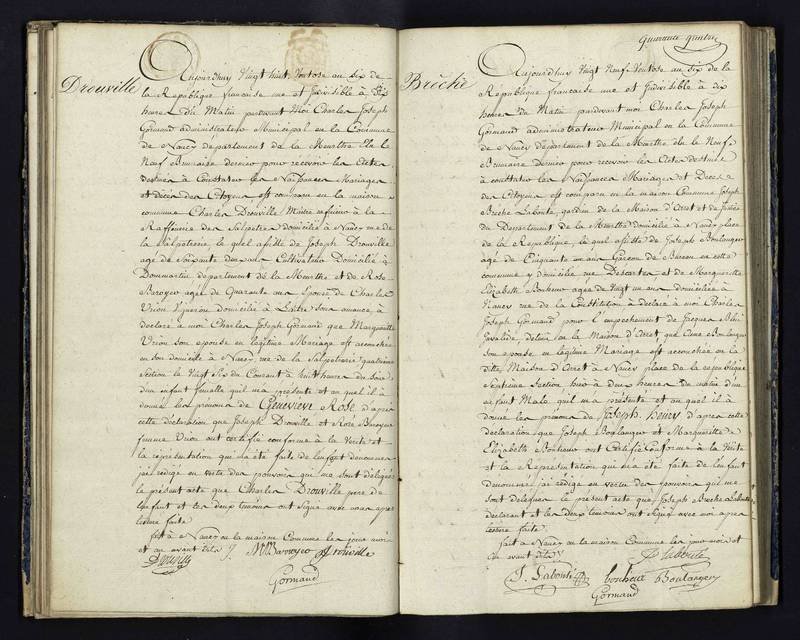 Drouville
Aujourd'huy Vingt huit Ventose an six de
la Republique française une et Indivisible à
heures du Matin pardevant Moi Charles Joseph
Gormand administrateur Municipal en la Commune
de Nancy departement de la Meurthe élu le
Neuf Brumaire dernier pour recevoir les Actes
destinés à Constater les Naissances Mariages
et décès des Citoyens est comparu en la maison
commune Charles Drouville à la
Raffinerie des Salpetres domicilié à Nancy rue de
la Salpetrerie, le quel assisté de Joseph Drouville
agé de Soixante ans Cultivateur Domicilié à
Dommartin departement de la Meurthe et de Rose
Baroyer agée de Quarante ans Epouse de Charles
Vrion Vigneron domicilié à
déclaré à moi Charles Joseph Gormand que Marguerite
Vrion son epouse en legitime Mariage est accouchée
en son domicille à Nancy rue de la Salpetrerie quatrième
Section le Vingt Six du Courant à huit heures du Soir
d'un enfant femelle qu'il m'a présenté et auquel il a
donné les prenoms de Genevieve Rose, d'après
cette declaration que Joseph Drouville et Rose Baroyer
femme Vrion ont certifié conforme à la Verité et
la représentation qui m'a été faite de l'enfant denommé
j'ai rédigé en vertu des pouvoirs qui me sont délégués
le présent acte que Charles Drouville pere de
l'enfant et les deux temoins ont Signé avec moi après
lecture faite
fait à Nancy en la maison Commune les jours mois
et an avant dits
Drouville
Gormand
Quarante
Breche
Aujourd'huy Vingt Neuf Ventose an six de la
République francaise une et Indivisible à dix
heures du Matin pardevant moi Charles Joseph
Gormand administrateur Municipal en la Commune
de Nancy département de la Meurthe élu le Neuf
Brumaire Dernier pour recevoir les Actes destinés
à constater les Naissances Mariages et Décès
des Citoyens est comparu en la maison Commune Joseph
Breche Labonté, gardien de la Maison d'Arret et de Justice
du Departement de la Meurthe domicilié à Nancy place
de la Republique, le quel assisté de Joseph Boulanger
agé de Cinquante un ans Garçon de Bureau en cette
commune y domicilié rue Descartes et de Marguerite
Elizabeth Bonheur agée de Vingt un ans domiciliée à
Nancy rue de la Constitution à déclaré à moi Charles
Joseph Gormand pour l'empechement de Jacques
Invalide, detenu en la Maison d'Arret que Anne Boulanger
son epouse en legitime Mariage est accouchée en la
ditte Maison d'Arret à Nancy place de la republique
Septieme section hier à deux heures du matin d'un
enfant Male qu'il m'a présenté et auquel il a
donné les prenoms de Joseph, henry d'après cette
declaration que Joseph Boulanger et Marguerite
Elizabeth Bonheur ont Certifié Conforme à la Verité
et la Representation qui m'a été faite de l'enfant
denommé j'ai rédigé en vertu des pouvoirs qui me
sont delegués le présent acte que Joseph Breche Labonté
déclarant et les deux temoins ont Signé avec moi après
lecture faite.
fait à Nancy en la maison Commune les jour mois et
an avant dits
J. Labonté bonheur Boulanger
Gormand